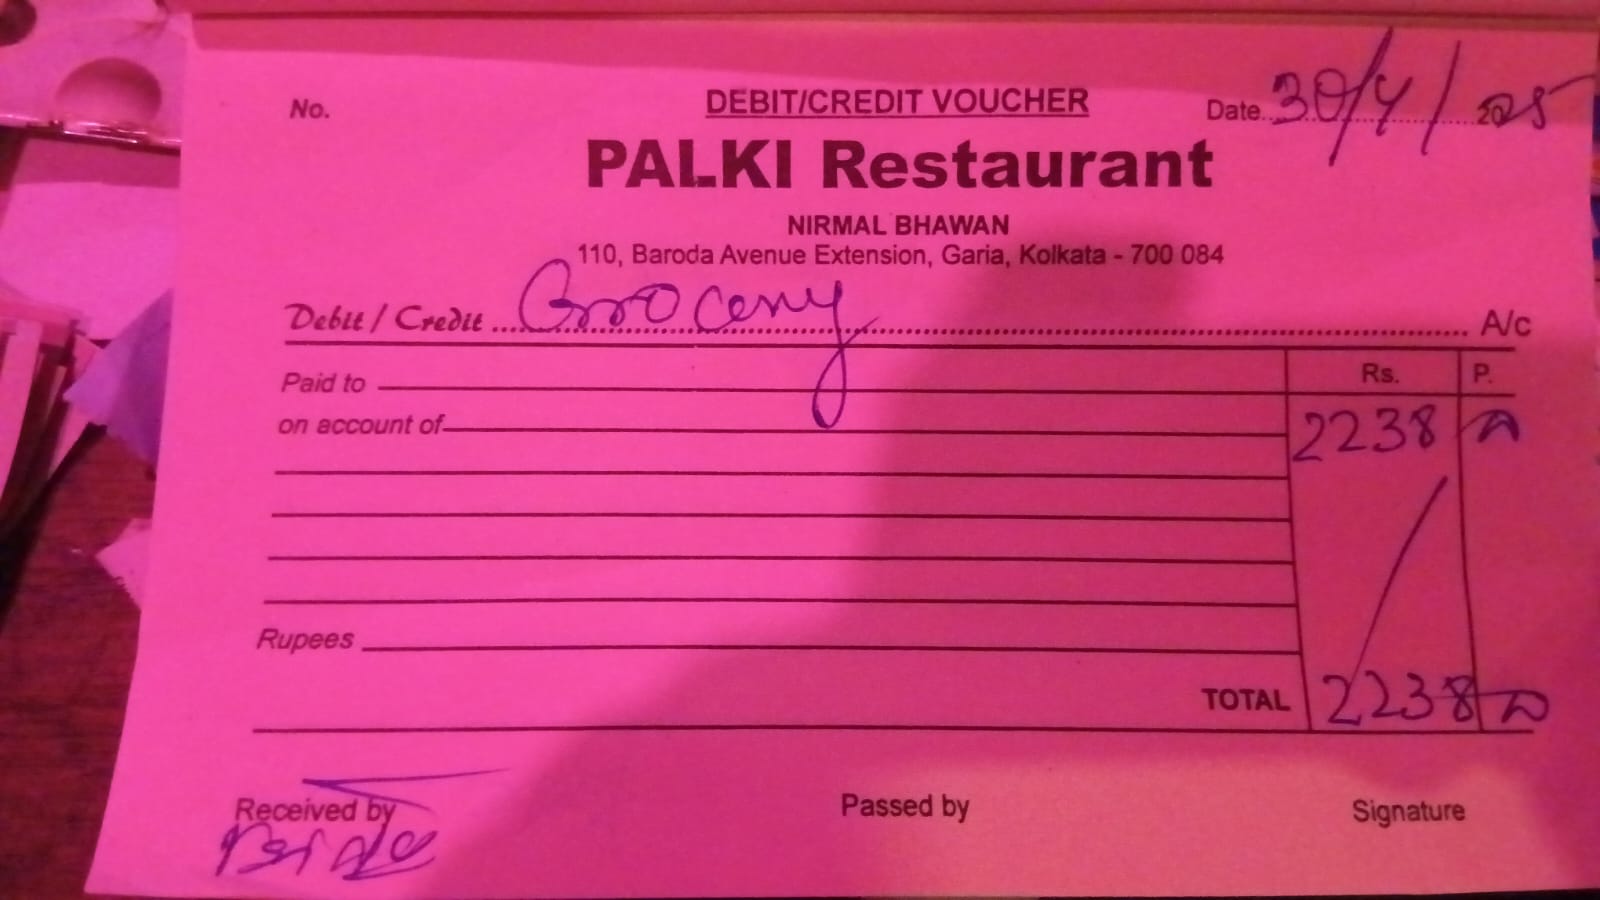 No.
DEBIT/CREDIT VOUCHER
Date 30/4/2025
PALKI Restaurant
NIRMAL BHAWAN
110, Baroda Avenue Extension, Garia, Kolkata - 700 084
Debit / Credit Grocery A/c
Rs. P.
Paid to
on account of 2238
Rupees
TOTAL 2238
Received by Passed by Signature